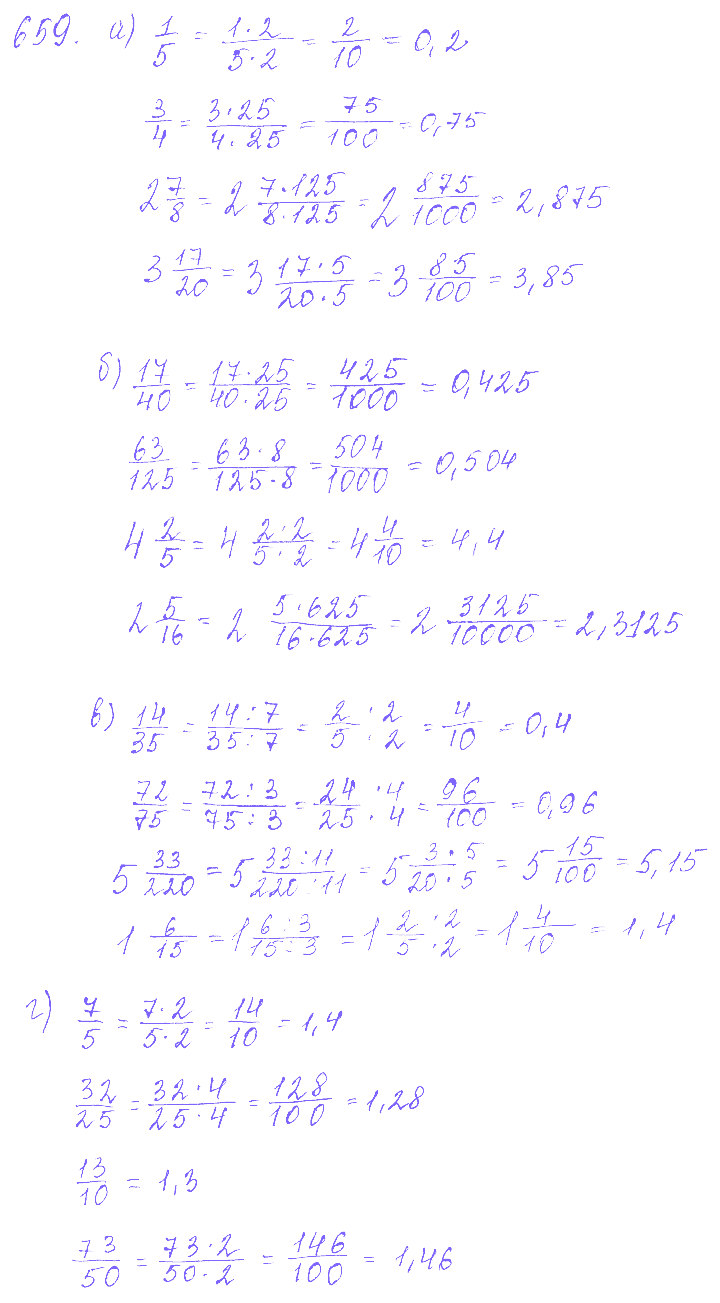 659. а) 1/5 = 1·2/5·2 = 2/10 = 0,2
3/4 = 3·25/4·25 = 75/100 = 0,75
2 7/8 = 2 7·125/8·125 = 2 875/1000 = 2,875
3 17/20 = 3 17·5/20·5 = 3 85/100 = 3,85
б) 17/40 = 17·25/40·25 = 425/1000 = 0,425
63/125 = 63·8/125·8 = 504/1000 = 0,504
4 2/5 = 4 2·2/5·2 = 4 4/10 = 4,4
2 5/16 = 2 5·625/16·625 = 2 3125/10000 = 2,3125
в) 14/35 = 14:7/35:7 = 2·2/5·2 = 4/10 = 0,4
72/75 = 72:3/75:3 = 24·4/25·4 = 96/100 = 0,96
5 33/220 = 5 33:11/220:11 = 5 3·5/20·5 = 5 15/100 = 5,15
1 6/15 = 1 6:3/15:3 = 1 2·2/5·2 = 1 4/10 = 1,4
г) 7/5 = 7·2/5·2 = 14/10 = 1,4
32/25 = 32·4/25·4 = 128/100 = 1,28
13/10 = 1,3
73/50 = 73·2/50·2 = 146/100 = 1,46